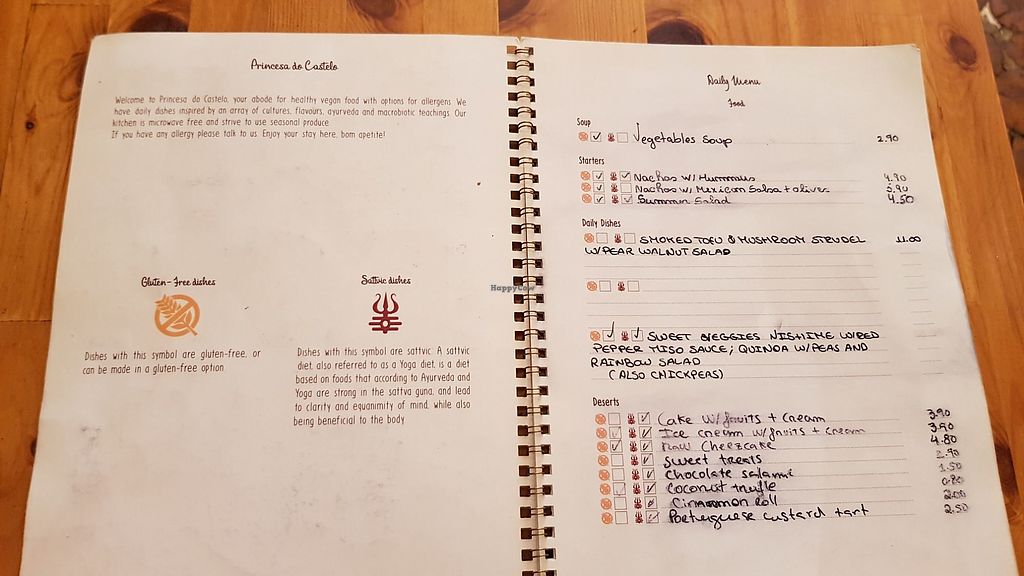 Princesa do Castelo
Welcome to Princesa do Castelo, your abode for healthy vegan food with options for allergens. We
have daily dishes inspired by an array of cultures, flavours, ayurveda and macrobiotic teachings. Our
kitchen is microwave free and strive to use seasonal produce.
If you have any allergy please talk to us. Enjoy your stay here, bom apetite!
Gluten-Free dishes
Dishes with this symbol are gluten-free, or
can be made in a gluten-free option
Sattvic dishes
Dishes with this symbol are sattvic. A sattvic
diet, also referred to as a Yoga diet, is a diet
based on foods that according to Ayurveda and
Yoga are strong in the sattva guna, and lead
to clarity and equanimity of mind, while also
being beneficial to the body
HappyCow
Daily Menu
Food
Soup
Vegetables Soup 2.90
Starters
Nachos w/ Hummus 4.90
Nachos w/ Mexican Salsa + olives 5.90
Summer Salad 4.50
Daily Dishes
SMOKED TOFU & MUSHROOM STRUDEL 11.00
W/PEAR WALNUT SALAD
SWEET VEGGIES NISHIME W/RED
PEPPER MISO SAUCE; QUINOA W/PEAS AND
RAINBOW SALAD
(ALSO CHICKPEAS)
Deserts
Cake w/ fruits + cream 3.90
Ice cream w/ fruits + cream 3.90
Raw Cheezcake 4.80
Sweet treats 2.90
Chocolate salami 1.50
Coconut truffle 0.80
Cinnamon Roll 2.00
Portuguese custard tart 2.50